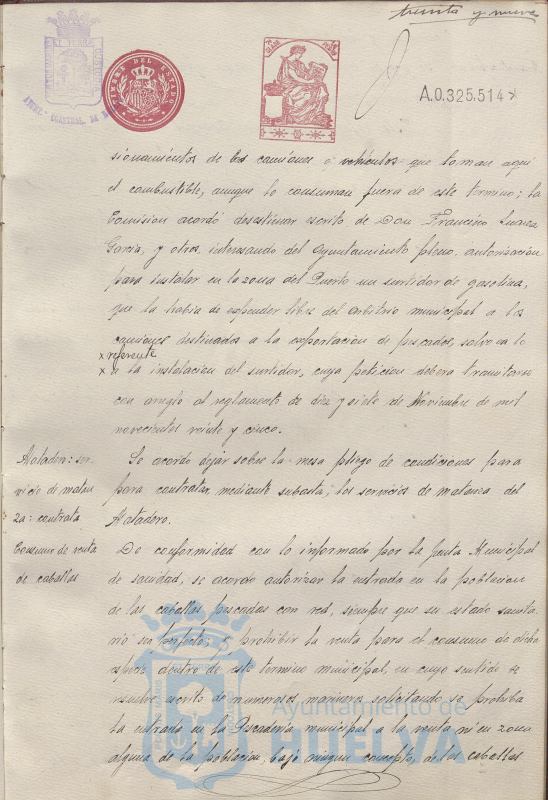 treinta y nueve
TIMBRE DEL ESTADO
A.0.325.514
sionamientos de los camiones o vehículos que toman aqui
el combustible, aunque lo consuman fuera de este termino; la
Comision acordó desestimar escrito de Don Francisco Suarez
Garcia, y otros, interesando del Ayuntamiento pleno, autorización
para instalar en la zona del Puerto un surtidor de gasolina,
que la habia de expender libre del arbitrio municipal a los
camiones destinados a la exportacion de pescados, salvo en lo
x referente
x a la instalacion del surtidor, cuya peticion debera tramitarse
con arreglo al reglamento de diez y siete de Noviembre de mil
novecientos veinte y cinco.
Matadero: ser-
vicio de matan-
za: contrata
Se acordo dejar sobre la mesa pliego de condiciones para
para contratar, mediante subasta, los servicios de matanza del
Matadero.
Consumo de venta
de caballas
De conformidad con lo informado por la Junta Municipal
de sanidad, se acordo autorizar la entrada en la poblacion
de las caballas pescadas con red, siempre que su estado sanita-
rio sea perfecto; y prohibir la venta para el consumo de dicha
especie dentro de este termino municipal, en cuyo sentido se
resuelve escrito de numerosos marineros solicitando se prohiba
la entrada en la Pescaderia municipal a la venta ni en zona
alguna de la poblacion, bajo ningun concepto, de las caballas
Ayuntamiento de
HUELVA